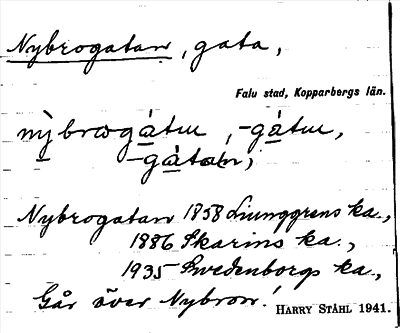 Nybrogatan, gata,
Falu stad, Kopparbergs län.
nỳbrωgátu, -gátu,
-gàtan,
Nybrogatan 1858 Ljunggrens ka.,
1886 Skarins ka.,
1935 Swedenborgs ka.,
Går över Nybron.
HARRY STÅHL 1941.